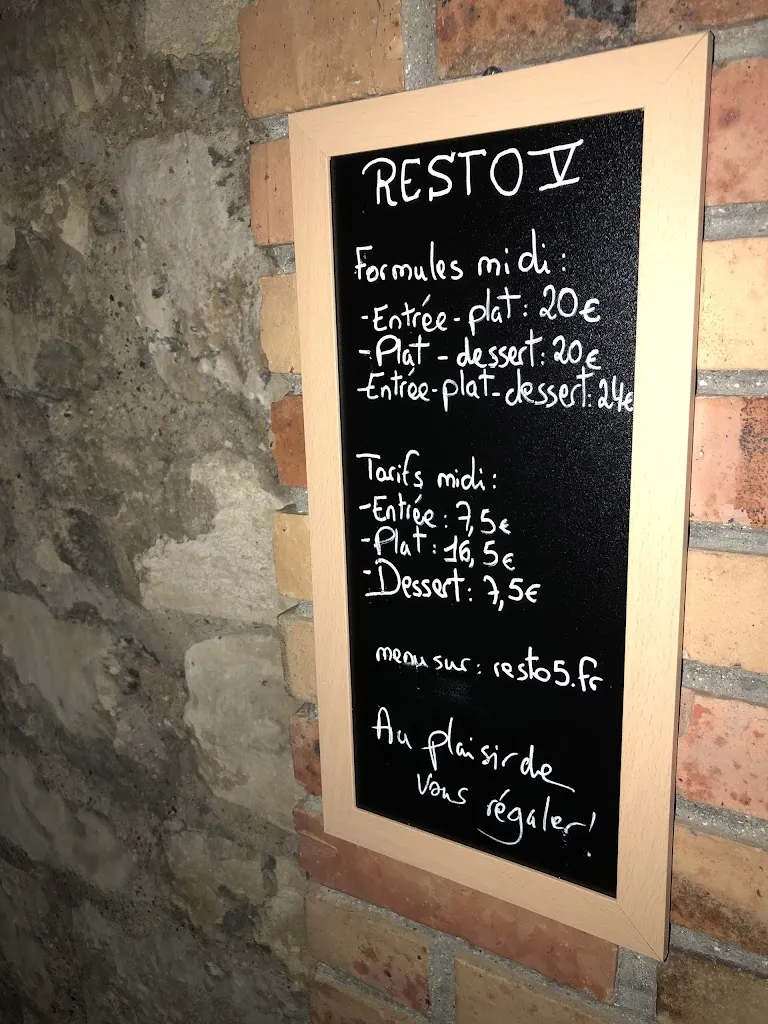 RESTO V
Formules midi :
-Entrée - plat : 20€
-Plat - dessert : 20€
-Entrée-plat-dessert : 24€
Tarifs midi :
-Entrée : 7,5€
-Plat : 16,5€
-Dessert : 7,5€
menu sur : resto5.fr
Au plaisir de
vous régaler !